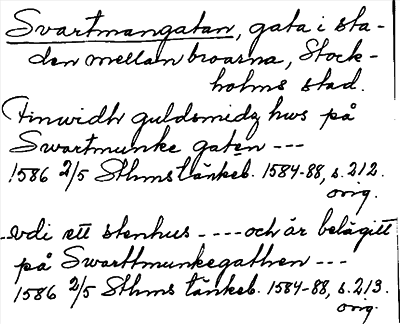 Svartmangatan, gata i sta-
den mellan broarna, Stock-
holms stad.
Finwidh guldsmidz hws på
Swartmunke gaten ---
1586 2/5 Sthms tänkeb. 1584-88, s. 212.
orig.
--vdi ett stenhus ----och är belägitt
på Swarttmunkegathen ---
1586 2/5 Sthms tänkeb. 1584-88, s. 213.
orig.